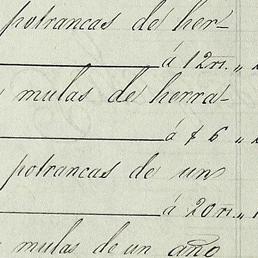 potrancas de her-
á 12 rs. "
mulas de herra-
á $ 6 "
potrancas de un
á 20 rs. "
mulas de un año